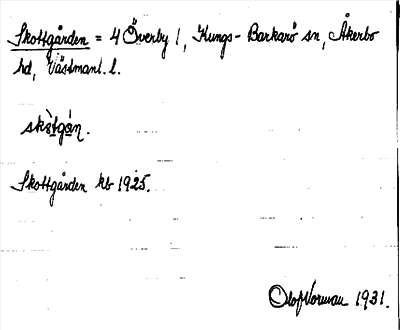 Skottgården = 4 Överby 1, Kungs-Barkarö sn, Åkerbo
hd, Västmanl. l.
skòtgán.
Skottgården kb 1925.
Olof Norman 1931.